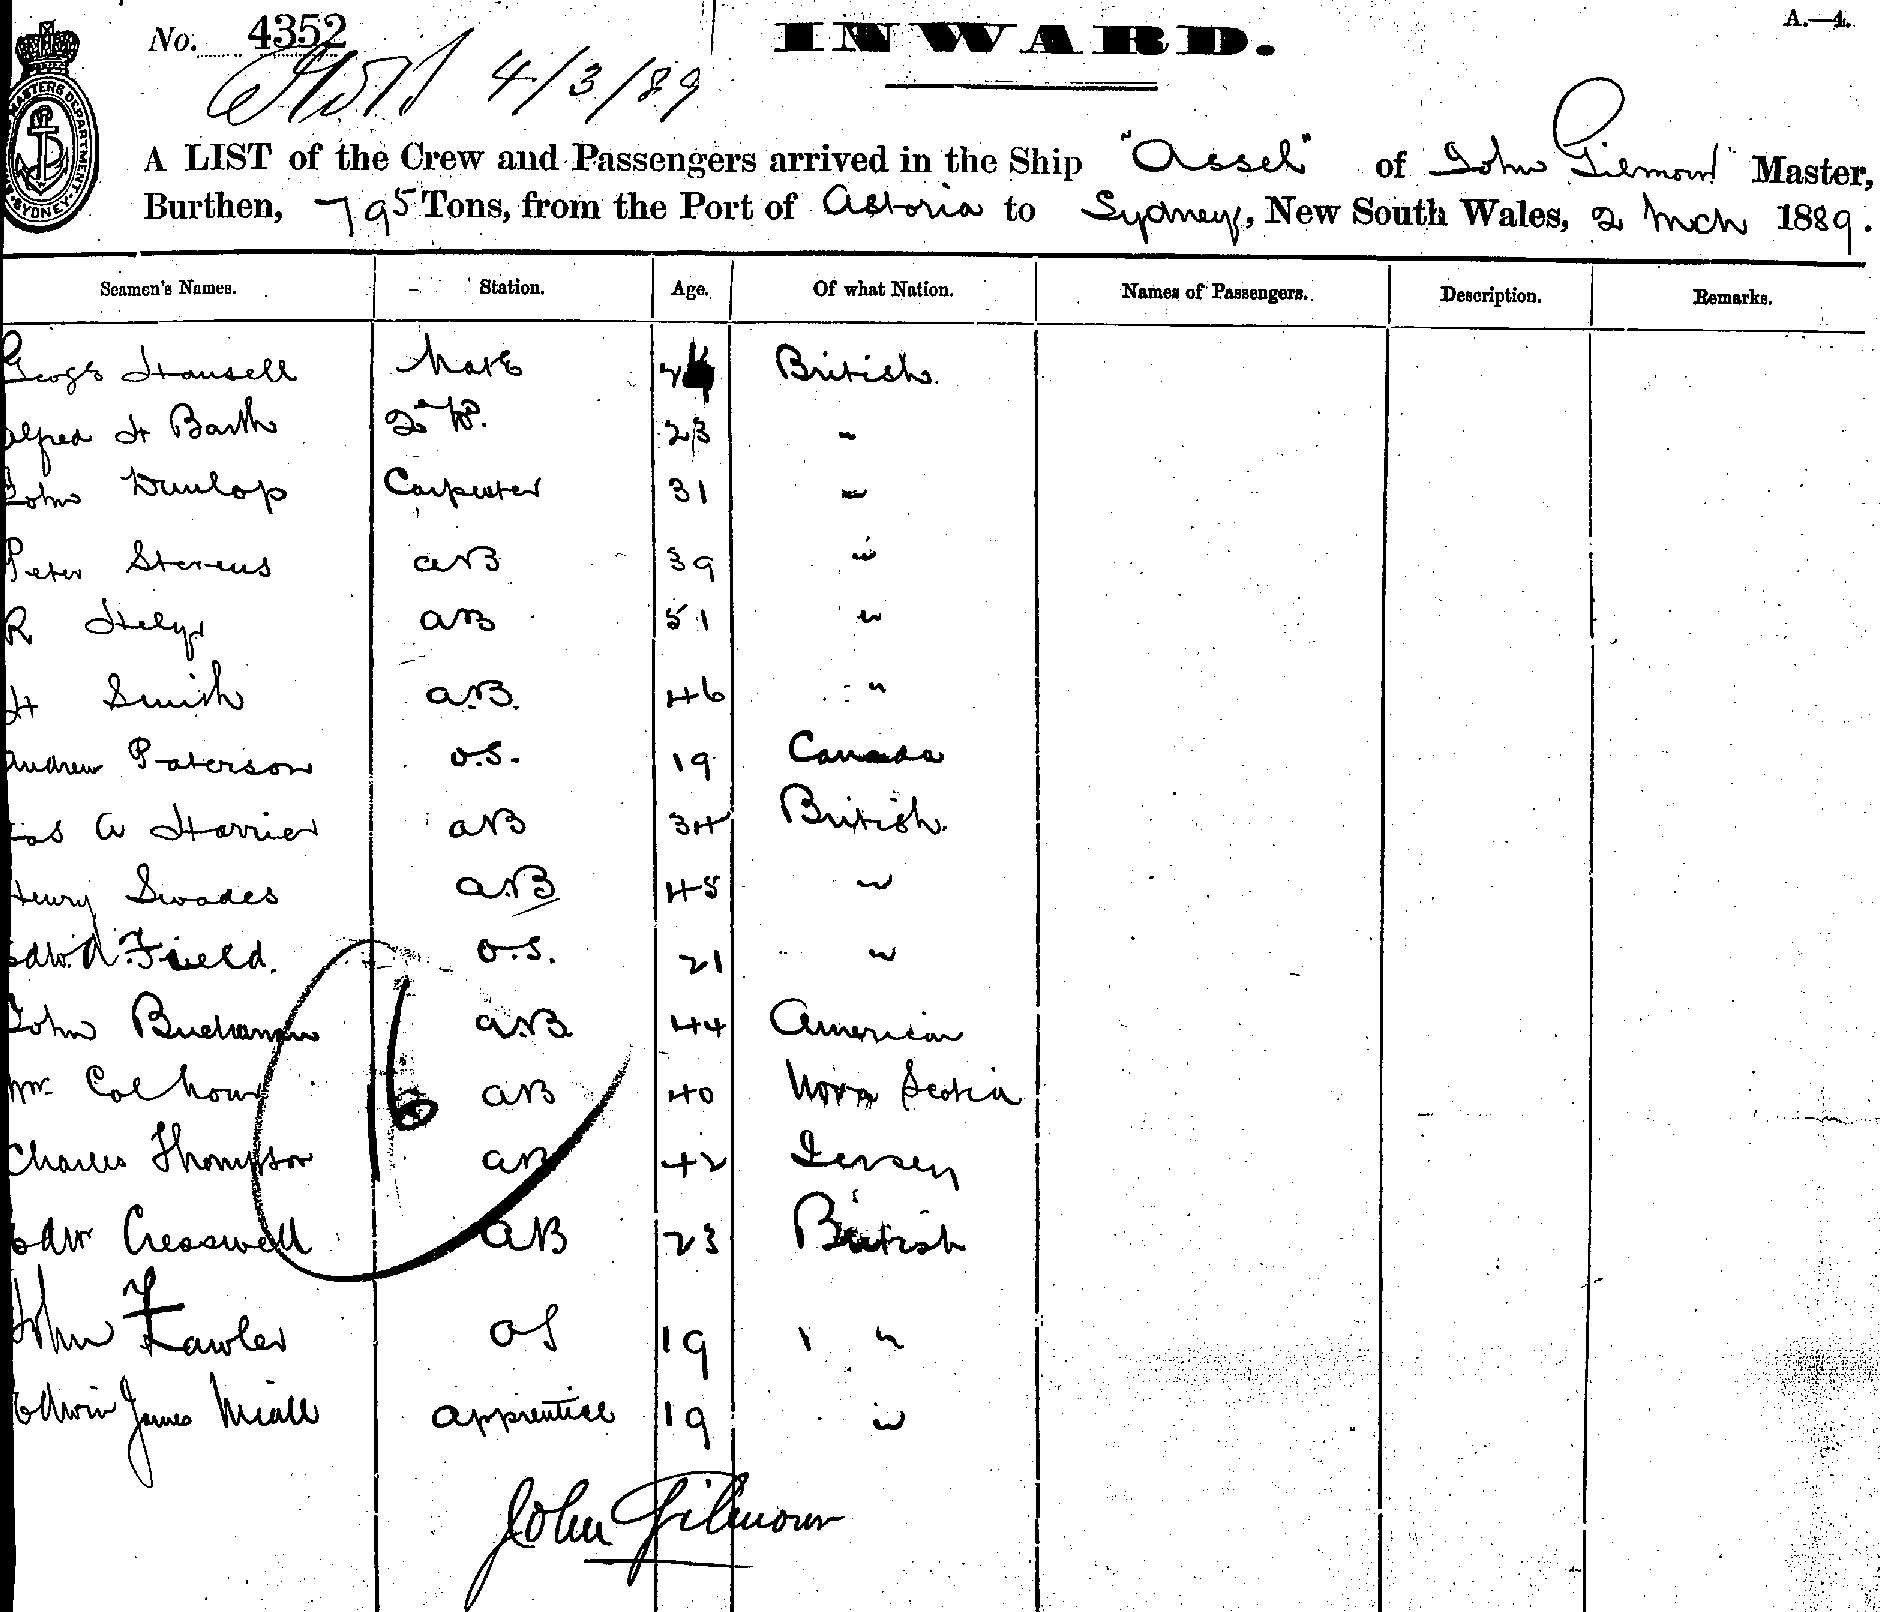 No. 4352
INWARD.
A.—4.
4/3/89
MASTERS DEPARTMENT
SYDNEY
A LIST of the Crew and Passengers arrived in the Ship "Assel" of John Gilmour Master,
Burthen, 795 Tons, from the Port of Astoria to Sydney, New South Wales, 2 Mch 1889.
Seamen's Names. Station. Age. Of what Nation. Names of Passengers. Description. Remarks.
Hansell Mate British
Alfred H Barth 2nd 23 "
John Dunlop Carpenter 31 "
Peter Stevens AB 39 "
R Hely AB 51 "
H Smith A.B. 46 "
Andrew Paterson O.S. 19 Canada
A Harrier AB 34 British
Henry Swades AB 45 "
Edw. A. Field. O.S. 21 "
John Buchanan A.B. 44 American
Wm. Calhoun AB 40 Nova Scotia
Charles Thompson AB 42 Jersey
Edw Cresswell AB 23 British
John Lawler OS 19 "
Edwin James Miall Apprentice 19 "
16
John Gilmour